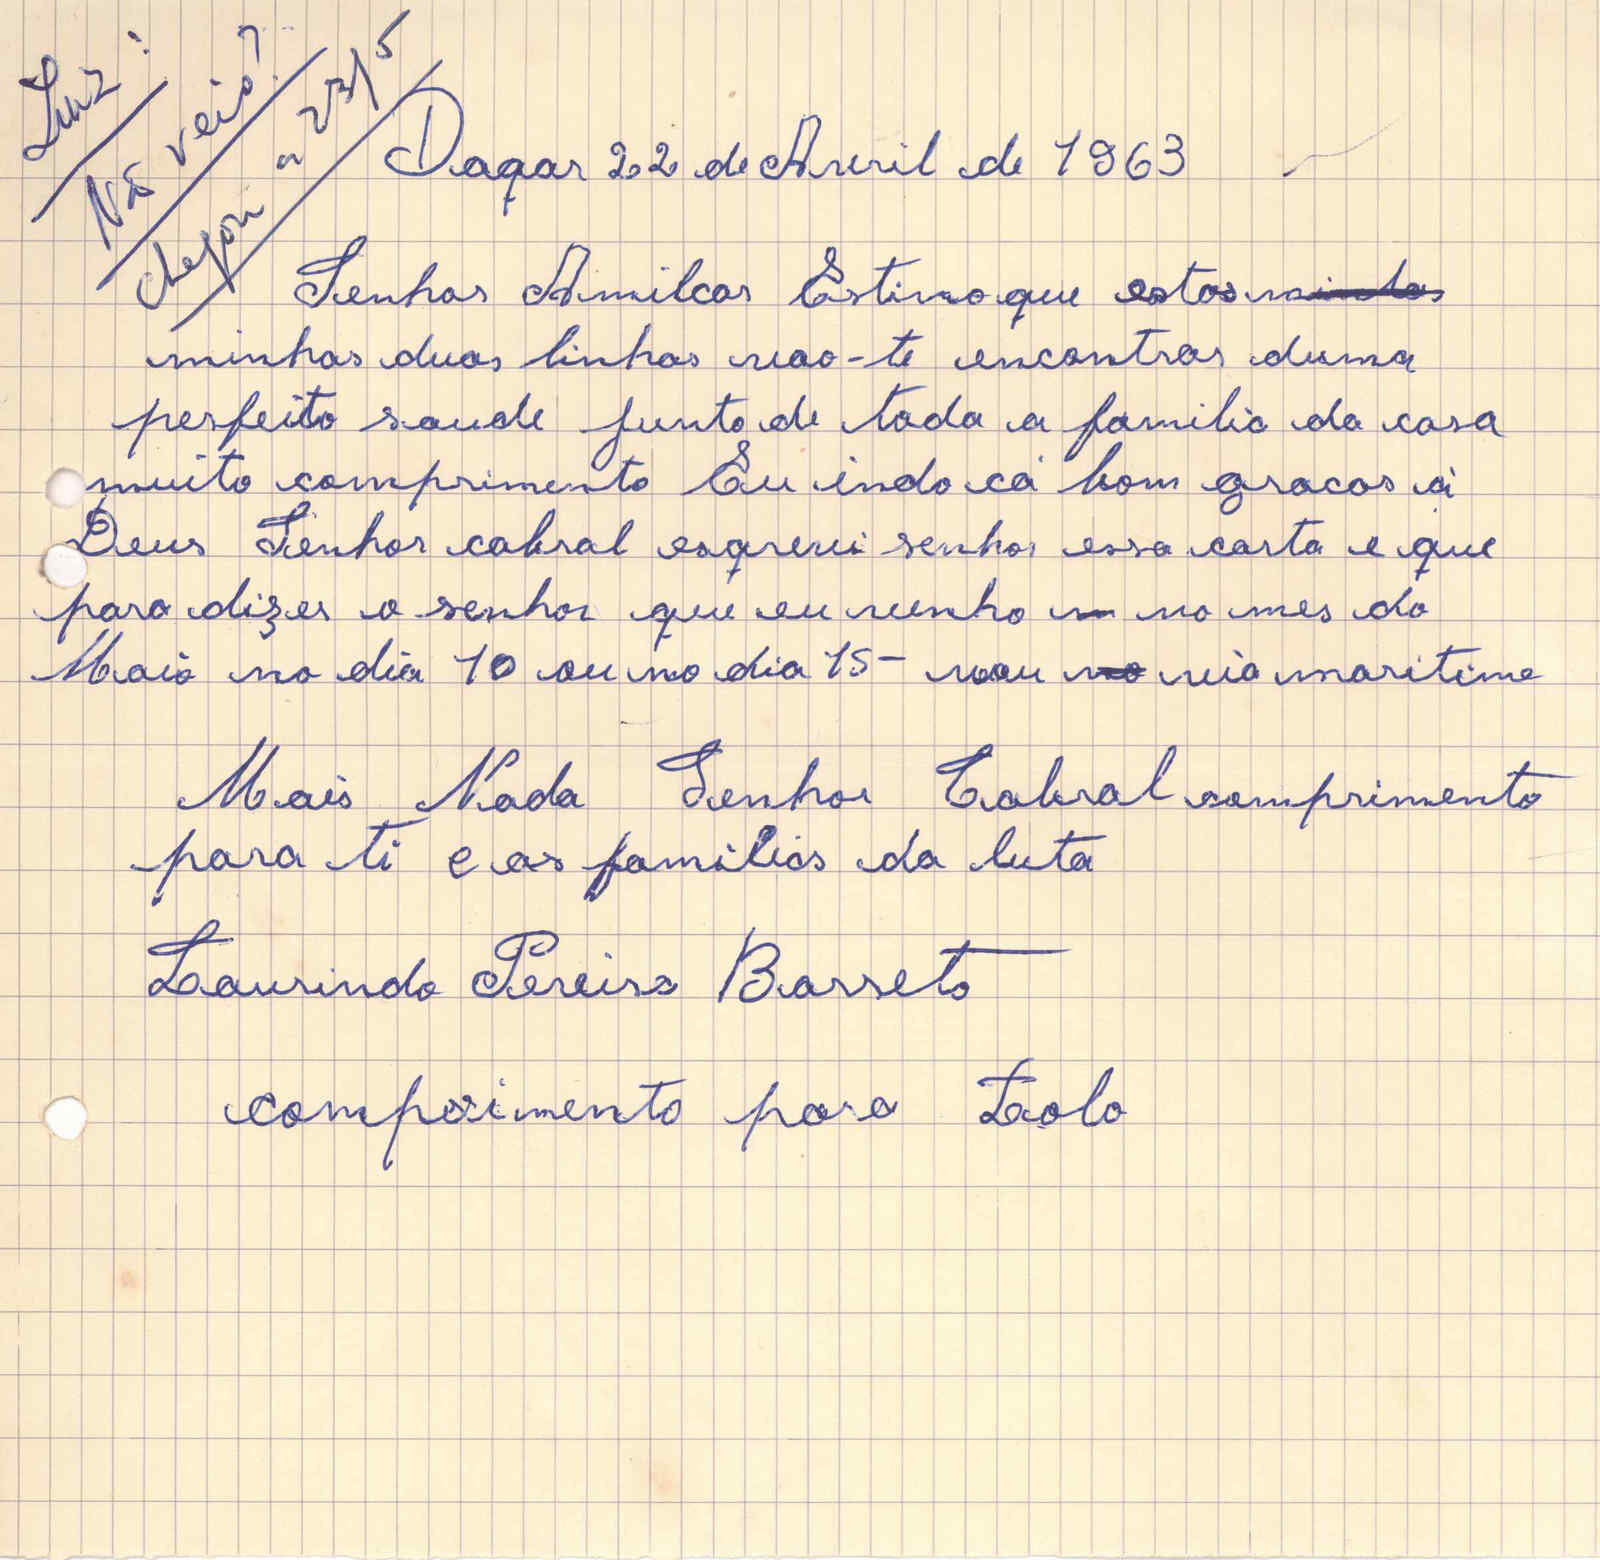 Luiz:
Não veio?
chegou a 23/5
Daqar 22 de Avril de 1963
Senhor Amilcar Estimo que estas
minhas duas linhas vao-te encontrar duma
perfeito saude junto de toda a familia da casa
muito comprimento Eu indo cá bom gracas á
Deus Senhor cabral esqrevi senhor essa carta e que
para dizer o senhor que eu venho no mes do
Maio no dia 10 ou no dia 15- vou via maritime
Mais Nada Senhor Cabral comprimento
para ti e as familias da luta
Laurindo Pereira Barreto
comprimento para Lolo